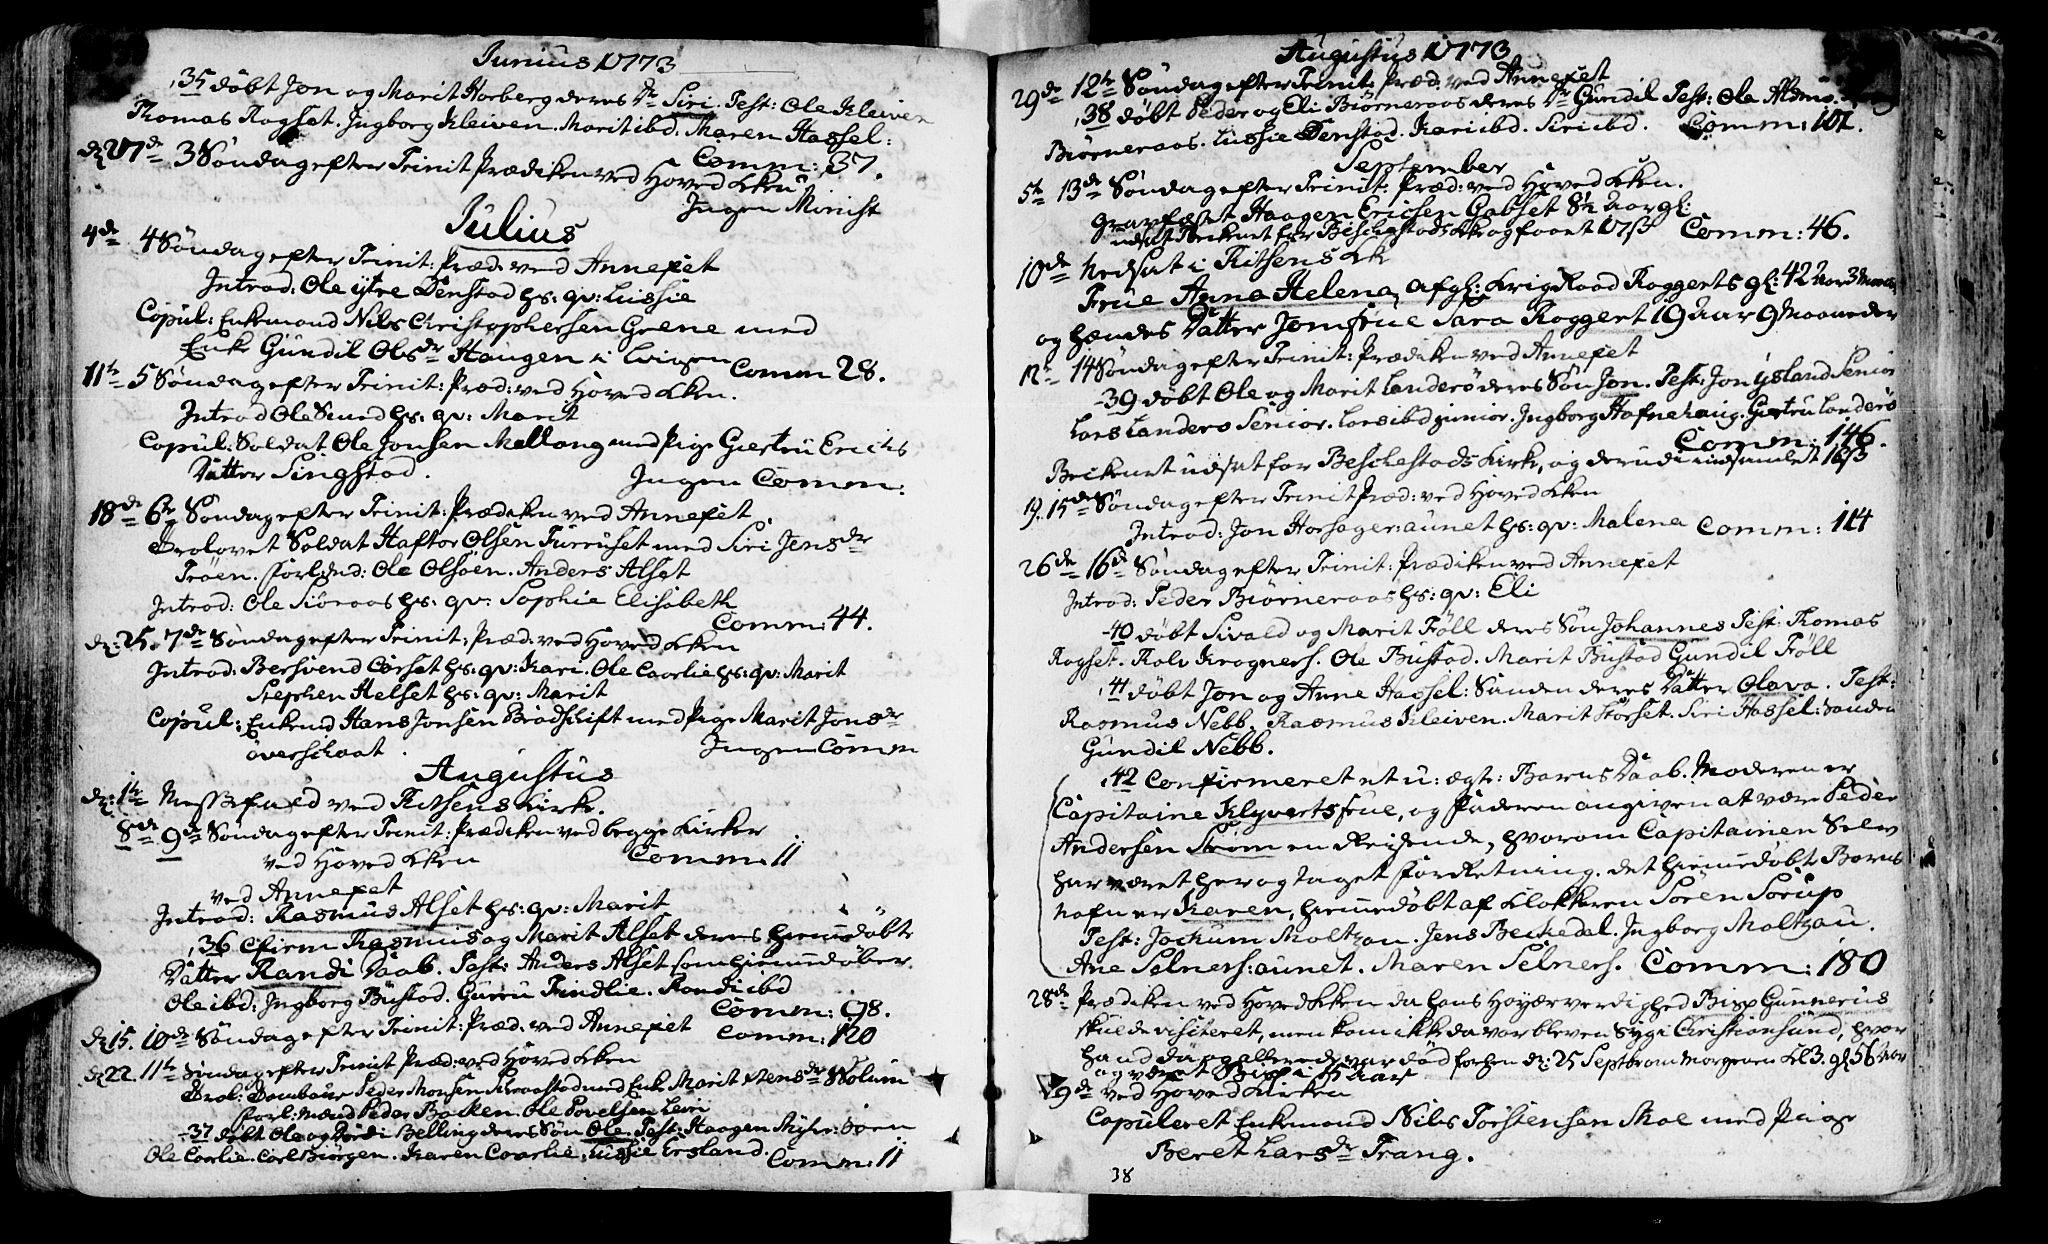 Junius 1773
,35 döbt Jon og Marit Horberg deres Dr Siri. Test: Ole Kleiven
Thomas Rogset. Ingborg Kleiven. Marit ibd. Maren Hassel:
d: 27de 3 Söndag efter Trinit Prædiken ved Hoved Kken Comm: 37.
Ingen Minist
Julius
4de 4 Söndag efter Trinit: Præd: ved Annexet
Introd: Ole ytre Denstad hs: qv: Lussie
Copul: Enkemand Nils Christophersen Grene med
Enke Gundil Olsdr Haugen i Comm 28.
11te 5 Söndag efter Trinit: Præd: ved Hoved Kken.
Introd Ole Smed hs: qv: Marit
Copul: Soldat Ole Jonsen Mellang med Pige Giertru Erichs
Datter Singstad. Ingen Comm:
18de 6te Söndag efter Trinit: Prædiken ved Annexet
Trolovet Soldat Haftor Olsen Furruset med Siri Jensdr
Tröen. Forl: Ole Olsöen. Anders Alset
Introd: Ole Siöraas hs: qv: Sophie Elisabeth
Comm: 44.
d: 25. 7de Söndag efter Trinit: Præd: ved Hoved Kken
Introd: Bersvend Corset hs: qv: Kari. Ole Caarlie hs: qv: Marit
Stephen Helset hs: qv: Marit
Copul: Enkemd Hans Jonsen Brodschift med Pige Marit Jonsdr
överschaat. Ingen Comm
Augustus
d: 1te Messefald ved Ritsens Kirke.
8de 9de Söndag efter Trinit: Prædiken ved begge Kirker
ved Hoved Kken Comm: 11
ved Annexet
Introd: Rasmus Alset hs: qv: Marit
,36 Cfirm Rasmus og Marit Alset deres hiemmedöbte
Datter Randi Daab. Test: Anders Alset som hiemmedöber.
Ole ibd: Ingborg Bustad. Gurru Trindlie. Randi ibd
Comm: 98.
d: 15. 10de Söndag efter Trinit: Præd: ved Annexet Comm: 120
d: 22. 11te Söndag efter Trinit Præd: ved Hoved Kken
Trol: Peder Monsen med Enke Marit Solum
Forl: Mænd Peder Bakken. Ole Povelsen
,37 döbt Ole og Dordi Belling deres Sön Ole. Test: Haagen
Ole Caarlie. Carl Biörgen. Karen Caarlie. Lussie Ersland. Comm: 11
Augustus 1773
29de 12te Söndag efter Trinit: Præd: ved Annexet
,38 döbt Peder og Eli Biörneraas deres Dr Gundil Test: Ole
Biörneraas. Lussie Denstad. Kari ibd. Siri ibd. Comm: 101.
September
5te 13de Söndag efter Trinit: Præd: ved Hoved Kken.
Gravfæstet Haagen Ericsen Gabset 8½ Aar gl:
udsat Beckenet for Beschestads Kk og faaet 17 sz Comm: 46.
10de Nedsat i Ritsens Kk
Frue Anna Helena, afgl: Krigs Raad Roggerts gl: 42 Aar 3 Maan
og hendes Datter Jomfrue Sara Roggert 19 Aar 9 Maaneder
12te 14 Söndag efter Trinit: Prædiken ved Annexet
,39 döbt Ole og Marit Landerö deres Sön Jon. Test: Jon Ysland Senior
Lars Landerö Senior. Lars ibd junior. Ingborg Hafnehaug. Giertru Landerö
Comm: 146.
Beckenet udsat for Beschestads Kirke, og derudi indsamlet 16 sz
19. 15de Söndag efter Trinit Præd: ved Hoved Kken
Introd: Jon Horsager:aunet hs: qv: Malena Comm: 114
26de 16de Söndag efter Trinit: Prædiken ved Annexet
Introd: Peder Biörneraas hs: qv: Eli
,40 döbt Sivald og Marit Föll deres Sön Johannes Test: Thomas
Rogset. Rolv Krogners. Ole Bustad. Marit Bustad Gundil Föll
,41 döbt Jon og Anne Hassel:Sanden deres Datter Olava. Test:
Rasmus Nebb. Rasmus Kleiven. Marit Störset. Siri Hassel:sanden
Gundil Nebb.
,42 Confirmeret et u:ægt: Barns Daab. Moderen er
Capitaine Klyverts frue, og Faderen angiven at være Peder
Andersen Ström en Reisende, hvorom Capitainen Selv
har været her og taget Forretning. det hiemmedöbt Barns
nafn er Karen, hiemmedöbt af Klokkeren Sören Sörup
Test: Jochum Moltzau. Jens Beckedal. Ingborg Moltzau.
Ane Selners:aunet. Maren Selners. Comm: 180
28de Prædiken ved Hoved Kken da hans Höyærværdighed Bisp Gunnerus
skulde visiteret, men kom ikke da var bleven syg i Christiansund, hvor
hand da allerede var död d: 25 Septbr om Morgenen Kl 3. gl 56 Aar
og været Bisp i 15 Aar
9de ved Hoved Kirken
Copuleret Enkemand Nils Torstensen Moe med Pige
Beret Larsdr Trang.
38